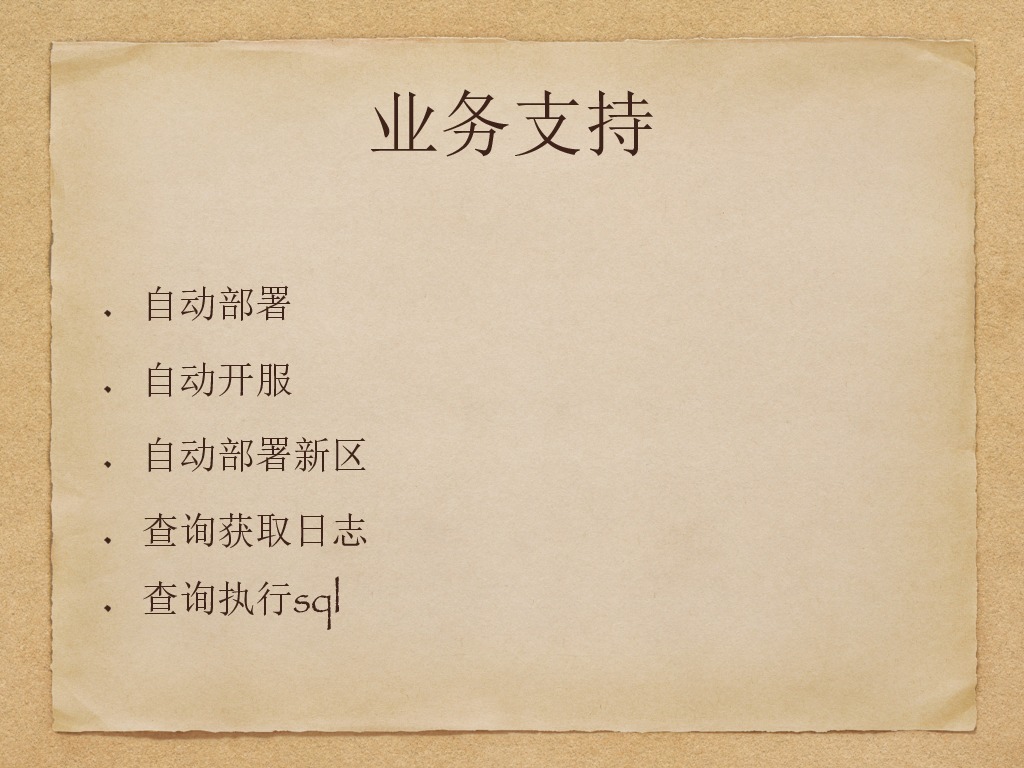 业务支持
自动部署
自动开服
自动部署新区
查询获取日志
查询执行sql